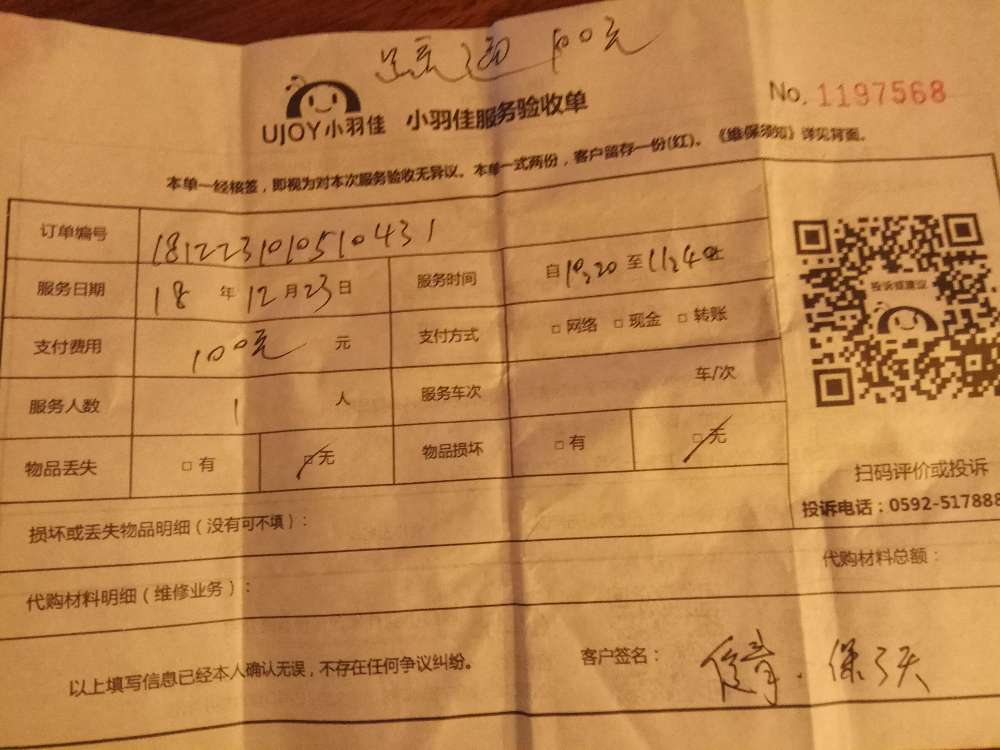 100元
No. 1197568
UJOY小羽佳 小羽佳服务验收单
本单一经核签，即视为对本次服务验收无异议。本单一式两份，客户留存一份(红)。《维保须知》详见背面。
订单编号 181223101510431
服务日期 18 年 12 月 23 日 服务时间 自 10:20 至 11:40 止
支付费用 100元 元 支付方式 □ 网络 □ 现金 □ 转账
服务人数 1 人 服务车次 车/次
物品丢失 □ 有 □ 无 物品损坏 □ 有 □ 无
投诉或建议
扫码评价或投诉
投诉电话：0592-517888
损坏或丢失物品明细（没有可不填）：
代购材料明细（维修业务）： 代购材料总额：
以上填写信息已经本人确认无误，不存在任何争议纠纷。 客户签名：